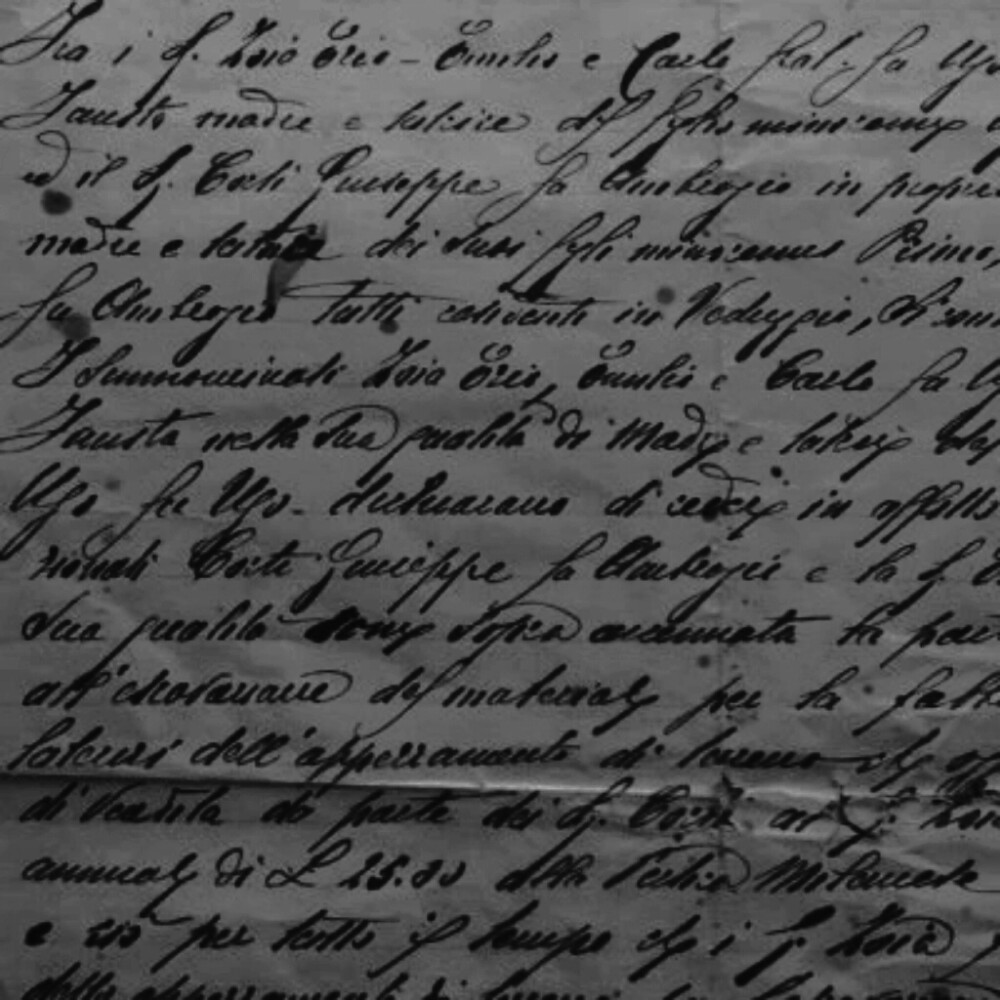 Fra i S. Zoia Ezio - Emilio e Carlo frat. fu Ugo
Fausta madre e tutrice del figlio minorenne
ed il S. Corti Giuseppe fu Ambrogio in proprio
madre e tutrice dei suoi figli minorenni Primo,
fu Ambrogio tutti conviventi in Veduggio, si
I summominati Zoia Ezio, Emilio e Carlo fu
Fausta nella sua qualità di Madre e tutrice del
Ugo fu Ugo - dichiarano di cedere in affitto
Corti Giuseppe fu Ambrogio e la S.
sua qualità come sopra accennata la
all'escavazione del materiale per la
laterizi dell'appezzamento di terreno che
di vendita da parte dei S. Corti ai S. Zoia
annuale di L 25.00 alla Pertica Milanese
e ciò per tutto il tempo che i S. Zoia
dello appezzamento di terreno